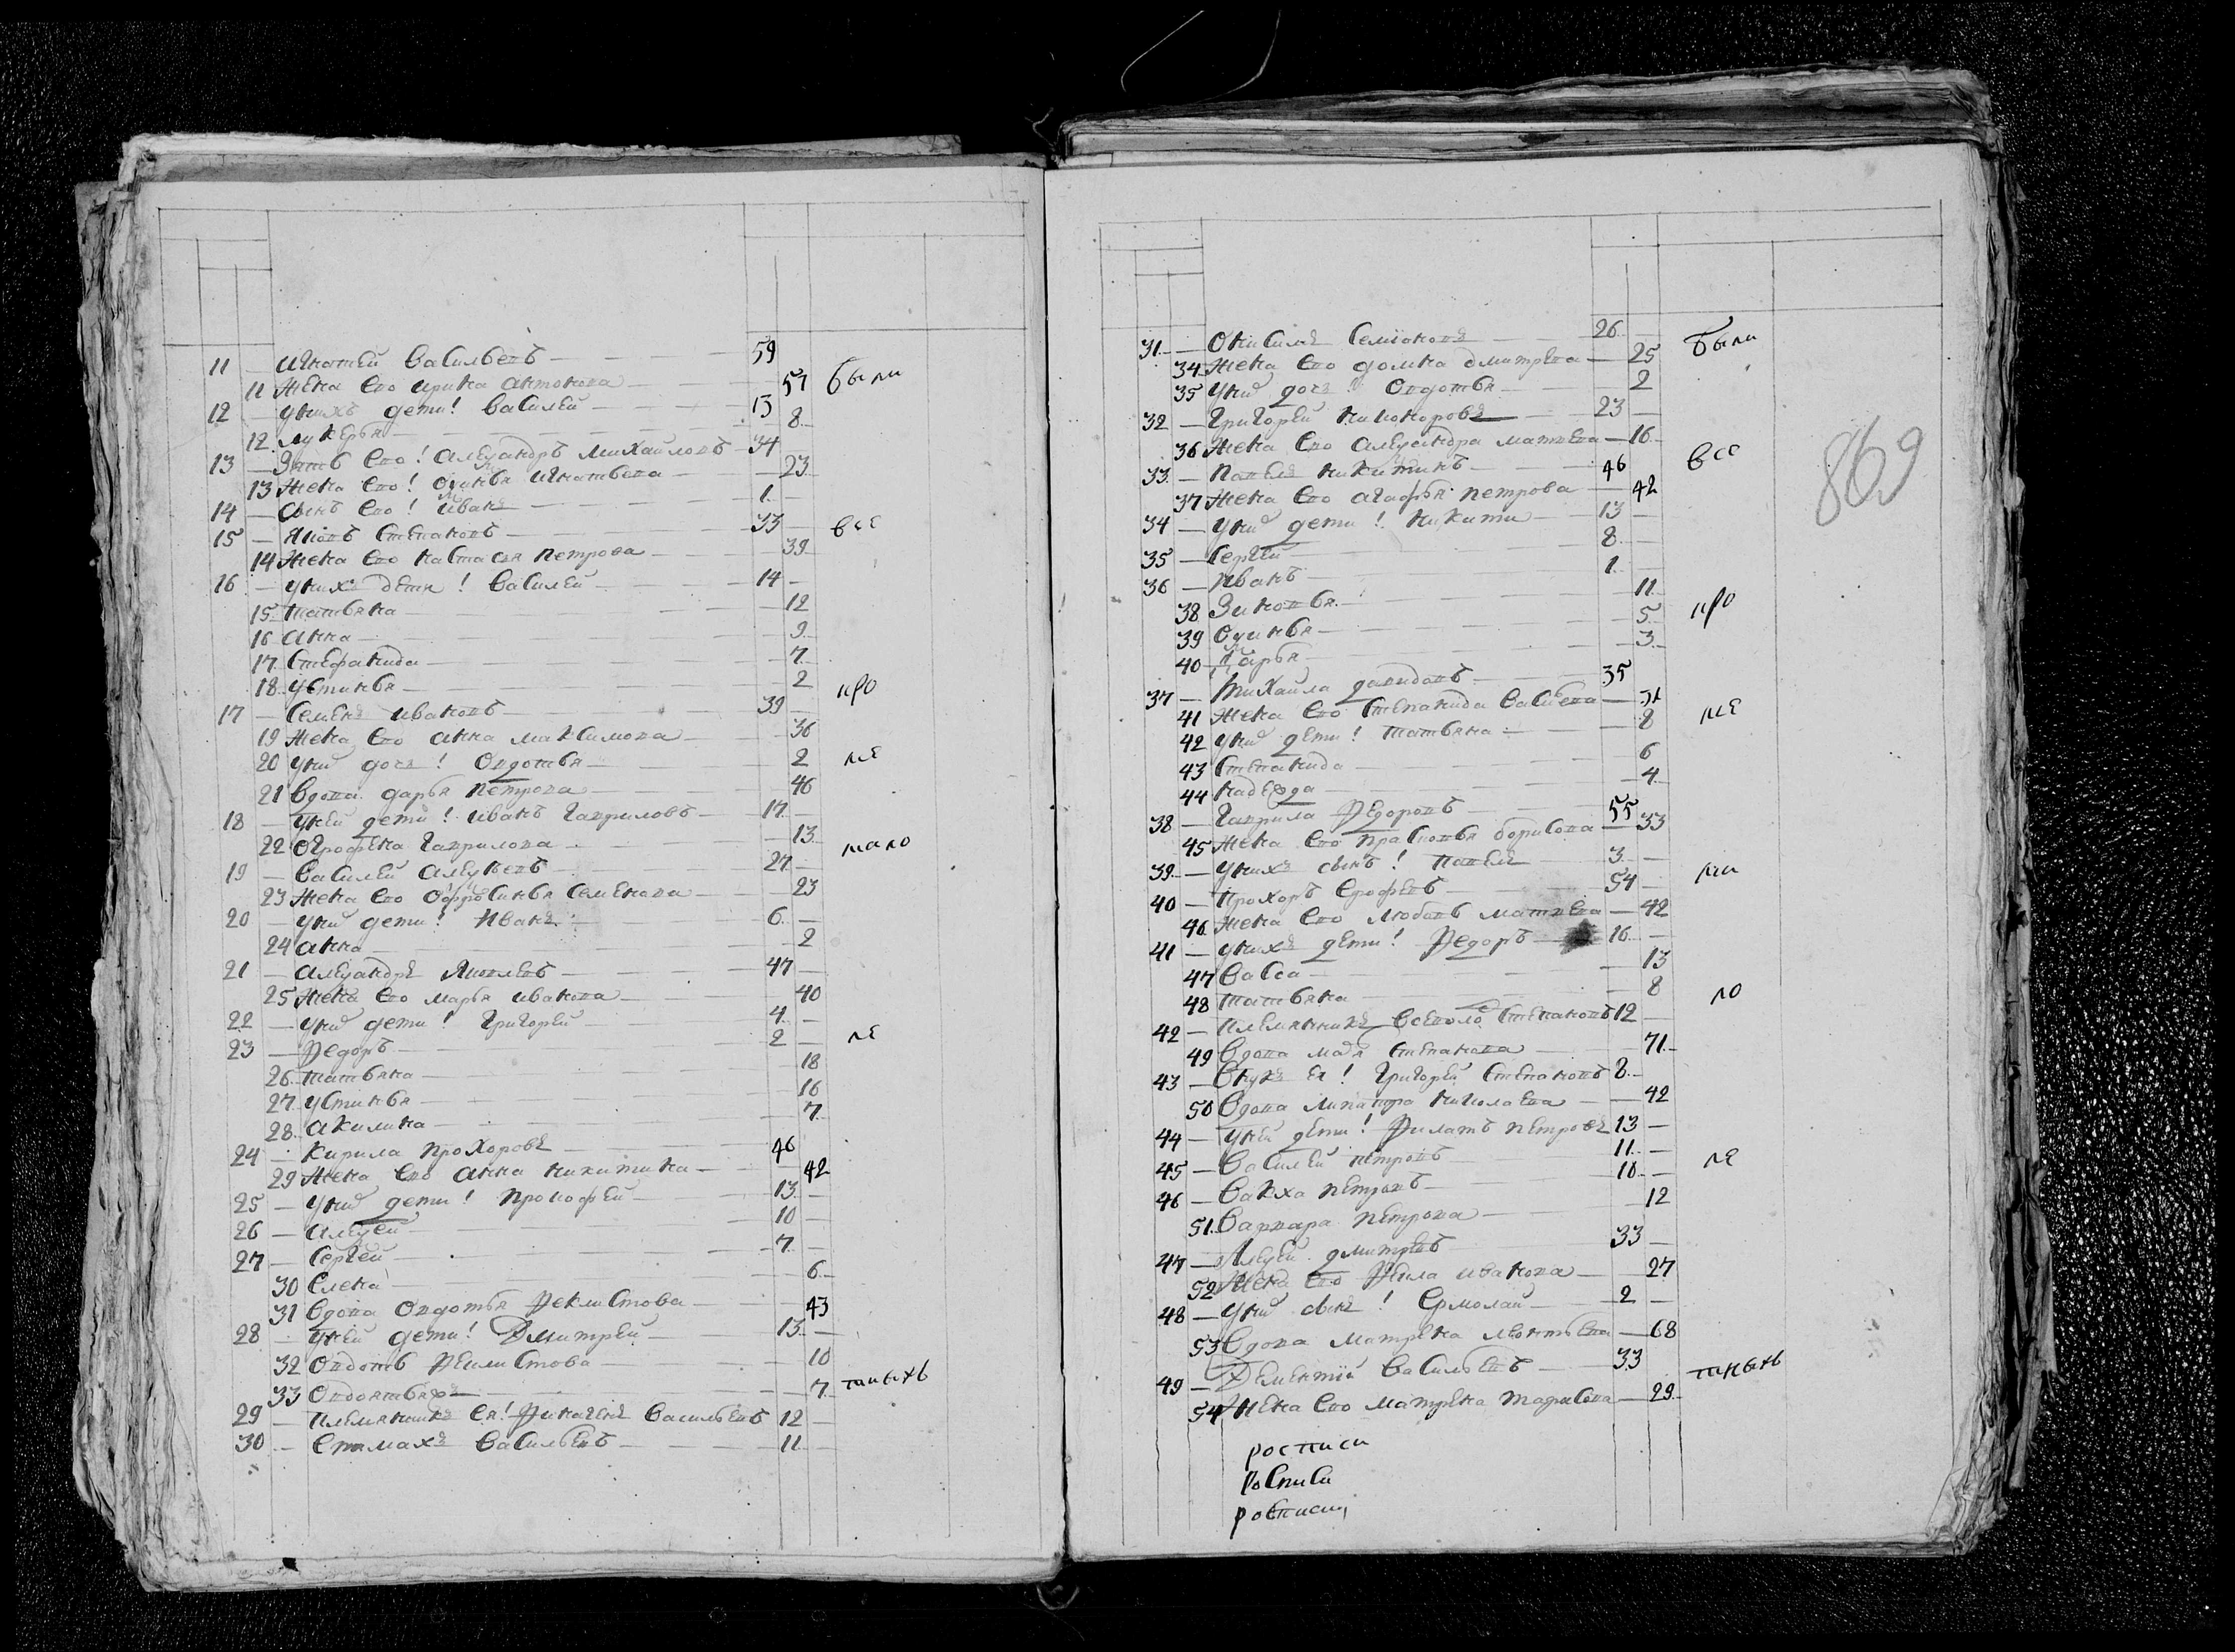 11 Игнатей Васильевъ 59
11 Жена Его Ирина Антонова 57 были
12 У нихъ дети! Василей 13
12 Лукерья 8
13 Зять Его! Алеѯандръ Михайловъ 34
13 Жена Его! Игнатьева 23
14 Сынъ Его! Иванъ 1
15 Яковъ Степановъ 33 все
14 Жена Его Настасья Петрова 39
16 У нихъ дети! Василей 14
15 Татьяна 12
16 Анна 9
17 Стефанида 7
18 Устинья 2 про
17 Семенъ Ивановъ 39
19 Жена Его Анна Максимова 36
20 У них дочь! Овдотья 2
21 Вдова Дарья Петрова 46
18 У ней дети! Иванъ Гавриловъ 17
22 Огрофена Гаврилова 13
19 Василей Алеѯеевъ 27
23 Жена Его Офросинья Семенова 23
20 У них дети! Иванъ 6
24 Анна 2
21 Алеѯандръ Яковлевъ 47
25 Жена Его Марья Иванова 40
22 У них дети! Григорей 4
23 Ѳедоръ 2
26 Татьяна 18
27 Устинья 16
28 Акилина 7
24 Кирила Прохоровъ 46
29 Жена Его Анна Никитина 42
25 У них дети! Прокофей 13
26 Алеѯей 10
27 Сергей 7
30 Елена 6
31 Вдова Овдотья Ѳеклистова 43
28 У ней дети! Дмитрей 13
32 Овдотья Ѳеклистова 10
33 7
29 Племянникъ Ея! Васильевъ 12
30 Васильевъ 11
869
31 26 были
34 Жена Его Домна Дмитрева 25
35 У них дочь! Овдотья 2
32 Григорей Никоноровъ 23
36 Жена Его Алеѯандра Матвева 16
33 Павелъ Никитинъ 46 все
37 Жена Его Агафья Петрова 42
34 У них дети! Никита 13
35 Сергей 8
36 Иванъ 1
38 Зиновья 11 про
39 5
40 Дарья 3
37 Михайла Давидовъ 35
41 Жена Его Степанида Васильева 31
42 У них дети! Татьяна 8
43 Степанида 6
44 Надежда 4
38 Гаврила Ѳедоровъ 55
45 Жена Его Прасковья Борисова 33
39 У нихъ сынъ! Павелъ 3
40 Прохоръ Ерофеевъ 54
46 Жена Его Любовь Матвева 42
41 У нихъ дети! Ѳедоръ 16
47 Васса 13
48 Татьяна 8
42 Племянникъ Степановъ 12
49 Вдова Степанова 71
43 Внукъ Ея! Григорей Степановъ 8
50 Вдова Николаева 42
44 У ней дети! Филатъ Петровъ 13
45 Василей Петровъ 11
46 Вакха Петровъ 10
51 Варвара Петрова 12
47 Алеѯей Дмитревъ 33
52 Жена Его Ѳекла Иванова 27
48 У них сынъ! Ермолай 2
53 Вдова Матрена Леонтьева 68
49 Дементій Васильевъ 33
54 Жена Его Матрена Тарасова 29
росписи
росписи
росписи